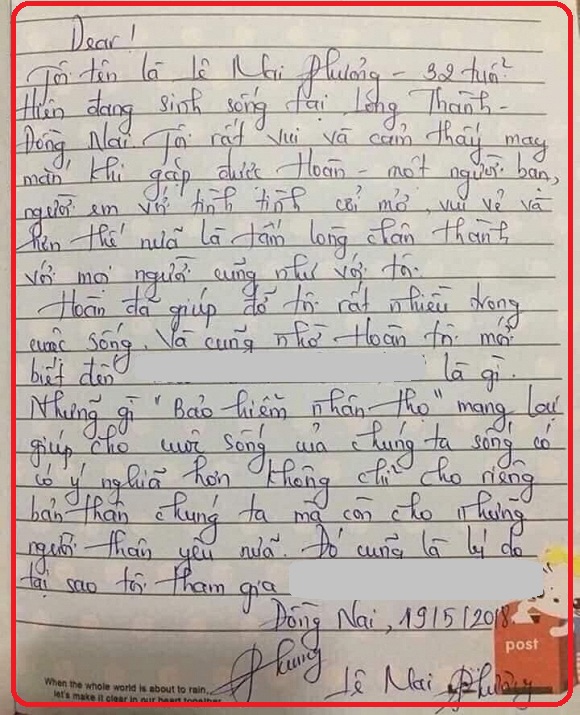 Dear!
Tôi tên là Lê Mai Phương - 32 tuổi
Hiện đang sinh sống tại Long Thành -
Đồng Nai Tôi rất vui và cảm thấy may
mắn khi gặp được Hoàn - một người bạn,
người em với tính tình cởi mở, vui vẻ và
hơn thế nữa là tấm lòng chân thành
với mọi người cũng như với tôi.
Hoàn đã giúp đỡ tôi rất nhiều trong
cuộc sống. Và cũng nhờ Hoàn tôi mới
biết đến là gì.
Những gì "Bảo hiểm nhân thọ" mang lại
giúp cho cuộc sống của chúng ta sống có
có ý nghĩa hơn không chỉ cho riêng
bản thân chúng ta mà còn cho những
người thân yêu nữa. Đó cũng là lý do
tại sao tôi tham gia
Đồng Nai, 19/5/2018.
post
Phương
Lê Mai Phương
When the whole world is about to rain,
let's make it clear in our heart together